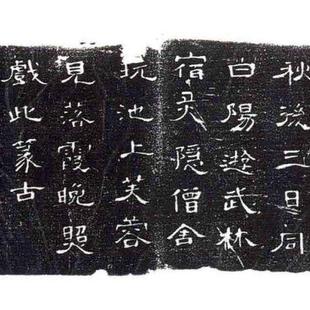 秋後三日同
白陽遊武林
宿灵隱僧舍
玩池上芙蓉
見落霞晚照
戲此篆古